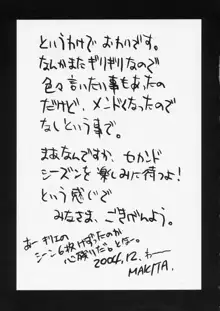 というわけで おわりです。
なんかまたギリギリなので
色々言いたい事もあったの
だけど、メンドくなったので
なしという事で。
まあなんですか、セカンド
シーズンを楽しみに待つよ!
という感じで
みなさま、ごきげんよう。
あー
シーン6枚けずったのが
心残りだ。となー。
2006.12. わー
MAKITA.